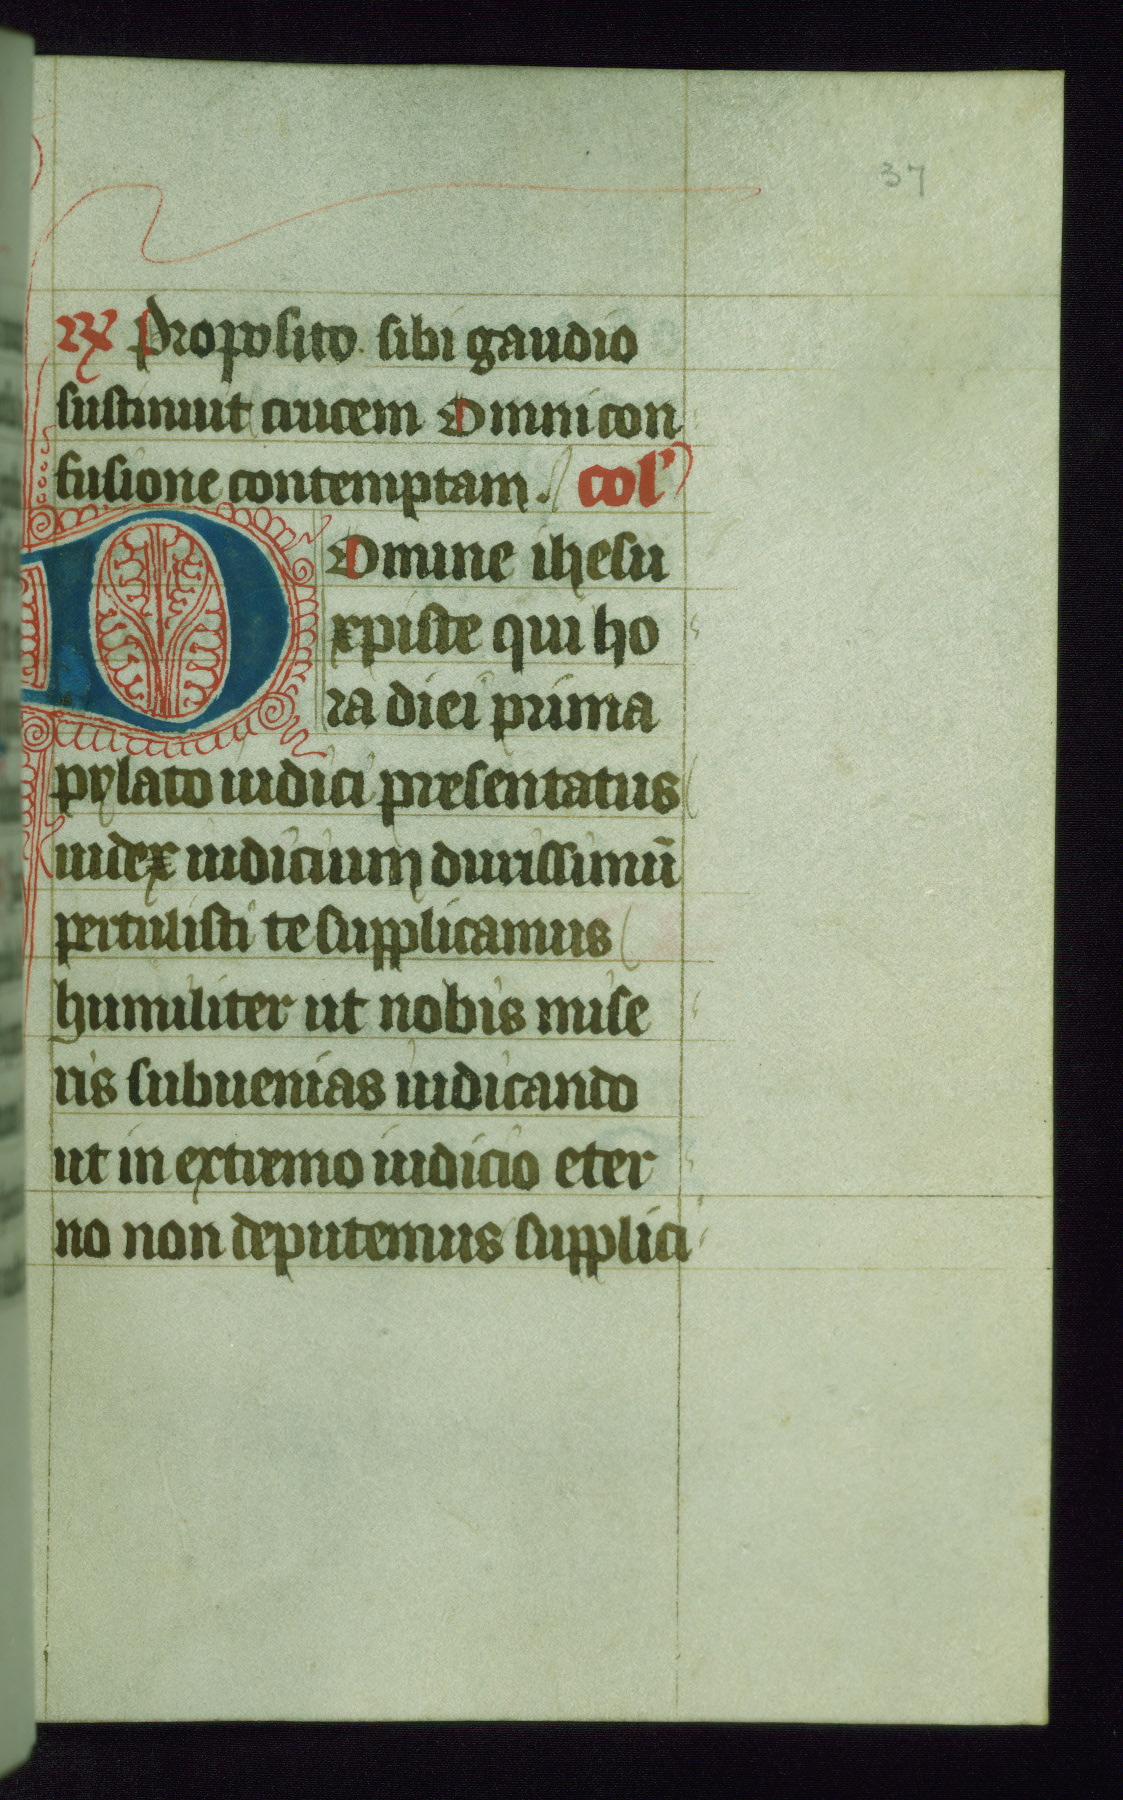 37
Rx Proposito sibi gaudio
sustinuit crucem Omni con
fusione contemptam. col'
Domine ihesu
xpiste qui ho
ra diei prima
pylato iudici presentatus
iudex iudicium durissimū
pertulisti te supplicamus
humiliter ut nobis mise
ris subuenias iudicando
ut in extremo iudicio eter
no non deputemus supplici